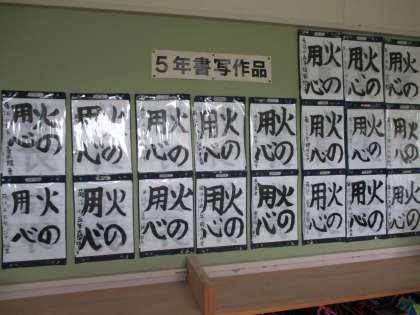 5年書写作品
火の
用心
火の
用心
火の
用心
火の
用心
火の
用心
火の
用心
火の
用心
火の
用心
火の
用心
火の
用心
火の
用心
火の
用心
火の
用心
火の
用心
火の
用心
火の
用心
火の
用心
火の
用心
火の
用心